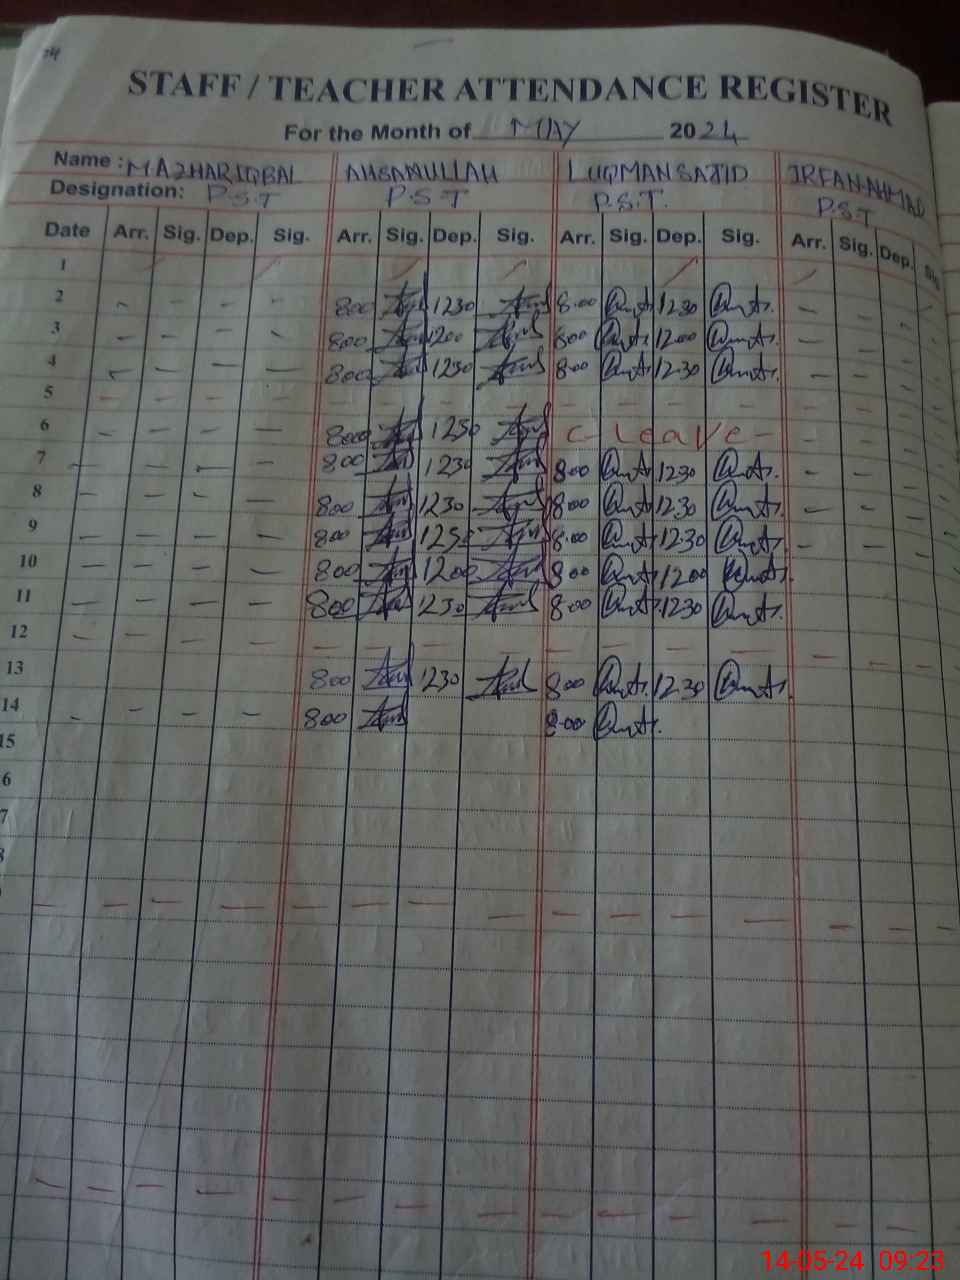 STAFF / TEACHER ATTENDANCE REGISTER
For the Month of MAY 2024
Name : MAZHAR IQBAL AHSANULLAH LUQMAN SAJJID IRFAN AHMAD
Designation: P.S.T P.S.T P.S.T. P.S.T
Date Arr. Sig. Dep. Sig. Arr. Sig. Dep. Sig. Arr. Sig. Dep. Sig. Arr. Sig. Dep. Sig
1
2 - - - - 800 1230 8.00 1230 - - - -
3 - - - - 800 1200 800 1200 - - - -
4 - - - - 800 1230 800 12.30 - - - -
5 - - - - - - - - - - - - - - - -
6 800 1230 C - Leave - - - - -
7 - - - - 800 1230 800 1230 - - - -
8 - - - - 800 1230 800 1230 - - - -
9 - - - - 800 1230 8.00 12.30 - - - -
10 - - - - 800 1200 800 1200
11 - - - - 800 1230 800 1230
12 - - - - - - - - - - - - - - -
13 800 1230 800 12.30
14 - - - - 800 8.00
15
6
7
14-05-24 09:23